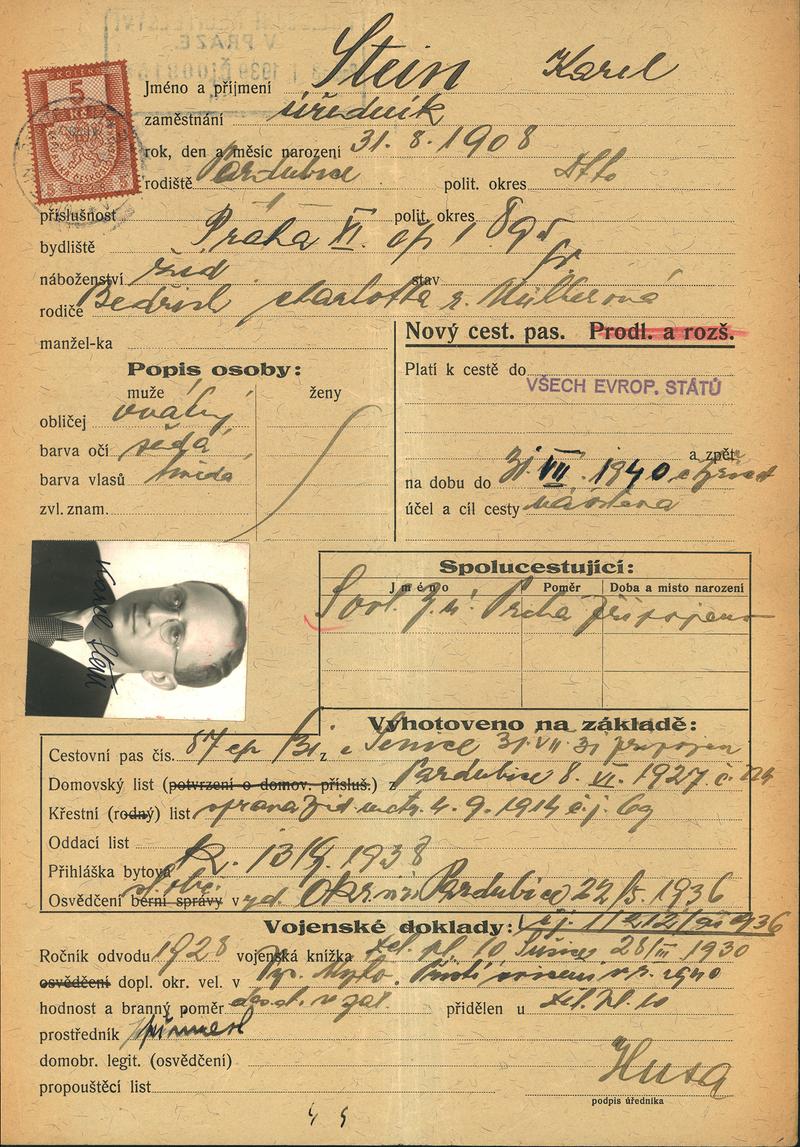 V PRAZE
1939
KOLEK
5
Kč
Stein Karel
Jméno a příjmení
zaměstnání úředník
rok, den a měsíc narození 31. 8. 1908
rodiště Pardubice polit. okres dtto
příslušnost " polit. okres
bydliště Praha XI. čp 1895
náboženství žid stav sv
rodiče Bedřich Charlotta r. Müllerová
manžel-ka
Nový cest. pas. Prodl. a rozš.
Popis osoby:
muže ženy
obličej oválný
barva očí šedá
barva vlasů hnědá
zvl. znam.
Platí k cestě do
VŠECH EVROP. STÁTŮ
a zpět
na dobu do 31. VII. 1940
účel a cíl cesty návštěva
Karel Stein
Spolucestující:
Jméno Poměr Doba a místo narození
připojeno
Vyhotoveno na základě:
Cestovní pas čís. 87 31. VII. 31 připojen
Domovský list (potvrzení o domov. přísluš.) z Pardubice 8. VI. 1927 č.
Křestní (rodný) list 4. 9. 1914 č. j. 69
Oddací list
Přihláška bytová 1938
Osvědčení berní správy v Pardubice 22/5. 1936
Vojenské doklady:
Ročník odvodu 1928 vojenská knížka žel. pl. 10 Sušice 28/III 1930
osvědčení dopl. okr. vel. v Vys. Mýto. 1940
hodnost a branný poměr přidělen u žel. pl. 10
prostředník
domobr. legit. (osvědčení)
propouštěcí list
Husa
podpis úředníka